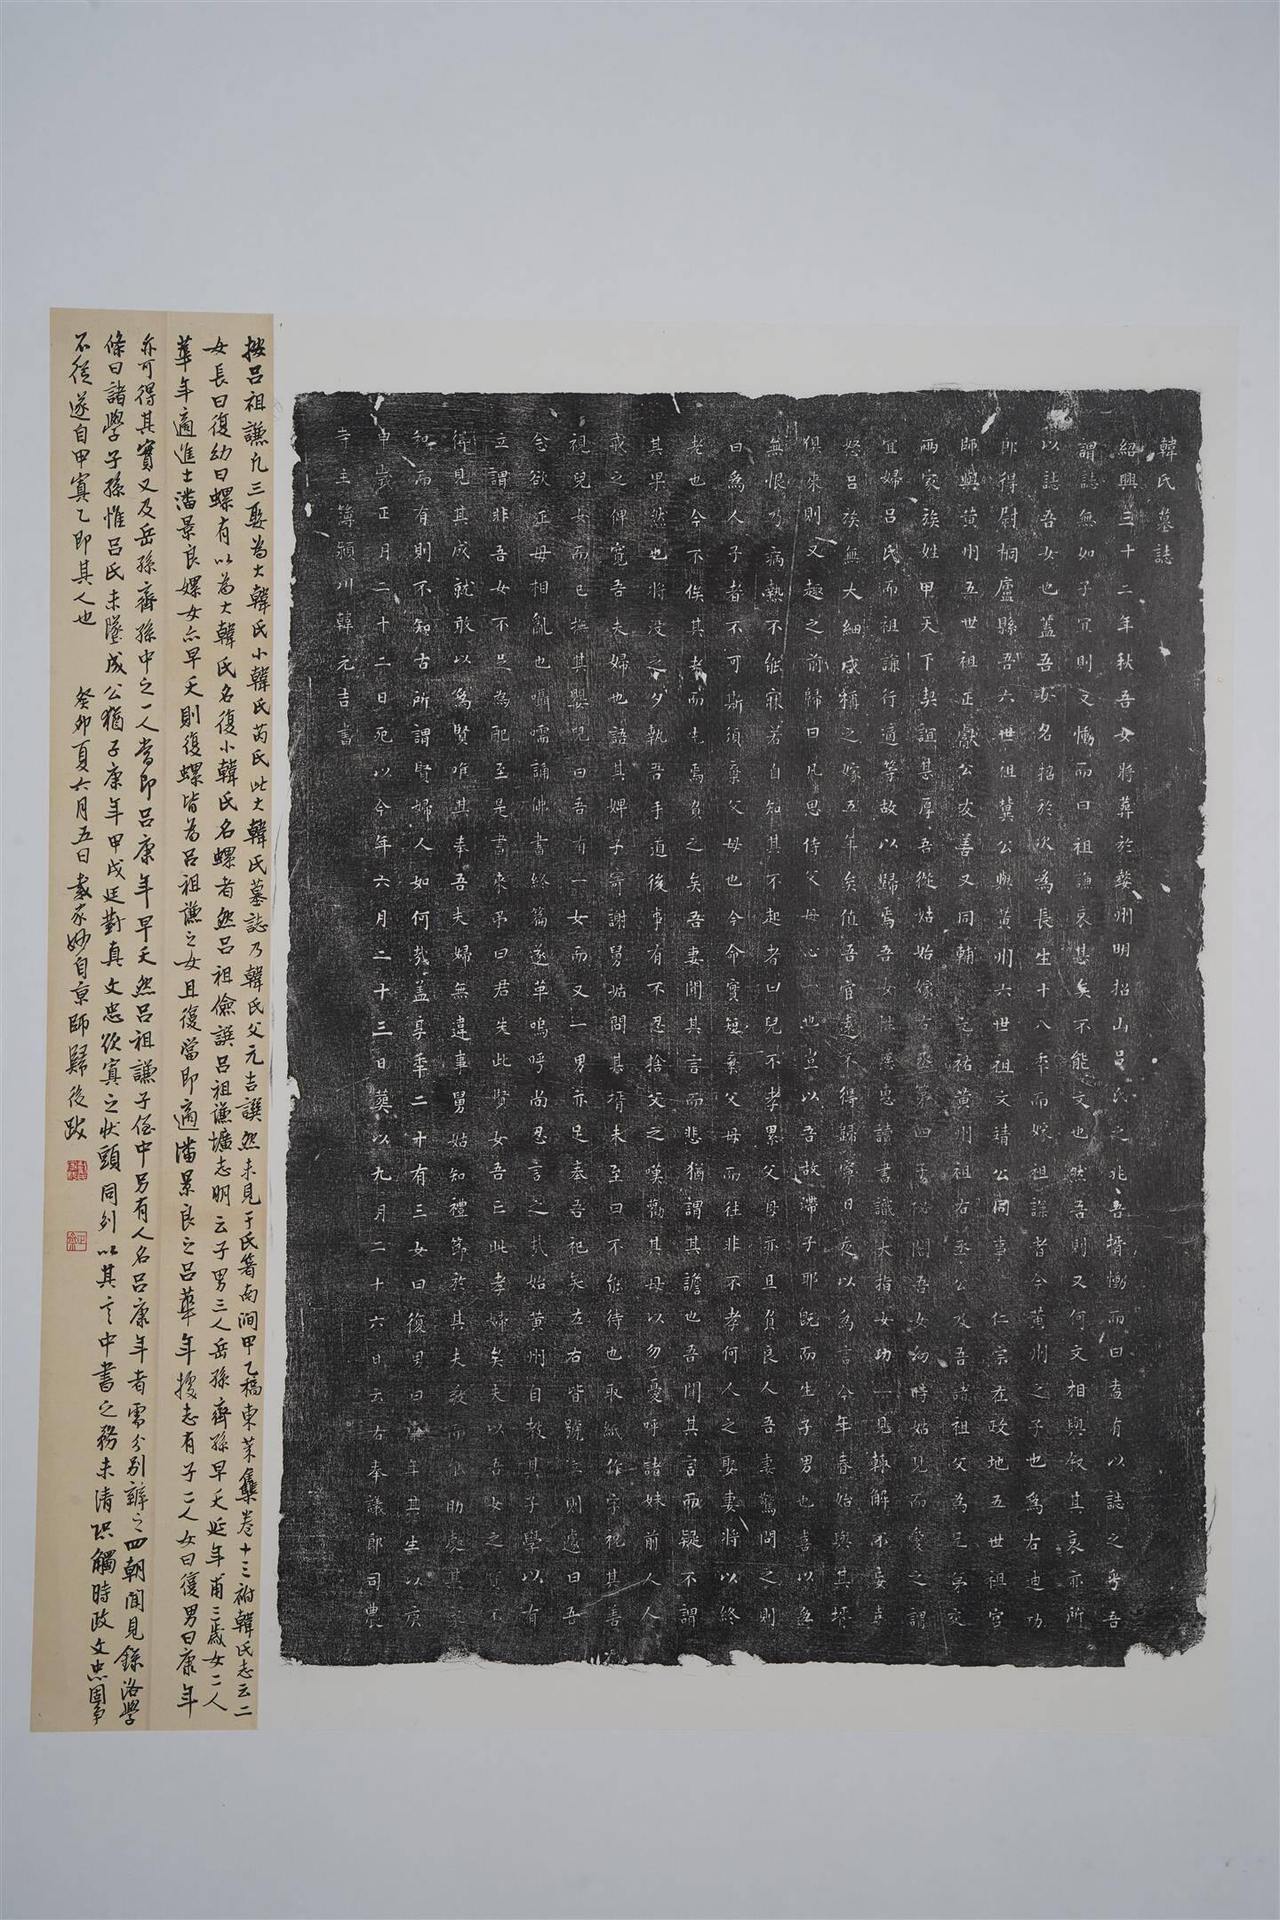 韓氏墓誌
紹興三十二年秋吾女將葬於婺州明招山呂氏之兆吾壻慟而曰盍有以誌之乎吾
謂誌無如子宜則又慟而曰祖謙哀甚矣不能文也然吾則又何文相與叙其哀亦所
以誌吾女也蓋吾女名招於次為長生十八年而嫁祖謙者今黃州之子也為右迪功
郎得尉桐廬縣吾六世祖冀公與黃州六世祖文靖公同事仁宗在政地五世祖宮
師與黃州五世祖正獻公友善又同輔元祐黃州祖右丞公及吾諸祖父為兄弟交
兩家族姓甲天下契誼甚厚吾從姑始嫁右丞第四子秘閣吾女幼時姑見而愛之謂
宜婦呂氏而祖謙行適等故以歸焉吾女性慈忠讀書識大指女功一見輒解不妄喜
怒呂族無大細咸稱之嫁五年矣值吾官遠不得歸寧日夜以為言今年春始與其壻
俱來則又趣之前歸曰凡思侍父母心一也豈以吾故滯子耶既而生子男也喜以無
無恨乃病熱不能寐若自知其不起者曰兒不孝累父母亦且負良人吾妻驚問之則
曰為人子者不可斯須棄父母也今命實短棄父母而往非不孝何人之娶妻將以終
老也今不俟其老而先焉負之矣吾妻聞其言而悲猶謂其譫也吾聞其言而疑不謂
其果然也將沒之夕執吾手道後事有不忍捨父之嘆勸其母以勿憂呼諸妹前人人
戒之俾寬吾夫婦也語其婢子寄謝舅姑問其壻未至曰不能待也取紙作字祝其善
視兒女而已撫其嬰兒曰吾有一女而又一男亦足奉吾祀矣左右皆號泣則遽曰吾
念欲正毋相亂也囁嚅誦佛書終篇遂革嗚呼尚忍言之哉始黃州自教其子學以有
立謂非吾女不足為配至是書來弔曰君失此賢女吾亡此孝婦矣夫以吾女之質不
得見其成就敢以為賢唯其奉吾夫婦無違事舅姑知禮節於其夫敬而
知而有則不知古所謂賢婦人如何哉蓋享年二十有三女曰復男曰康年其生以庚
申歲正月二十二日死以今年六月二十三日葬以九月二十六日云右奉議郎司農
寺主簿潁川韓元吉書
按呂祖謙凡三娶為大韓氏小韓氏芮氏此大韓氏墓誌乃韓氏父元吉譔然未見于氏箸南澗甲乙稿東萊集卷十三祔韓氏志云二
女長曰復幼曰螺有以為大韓氏名復小韓氏名螺者然呂祖儉譔呂祖謙壙志明云子男三人岳孫齊孫早夭延年甫三歲女二人
華年適進士潘景良螺女亦早夭則復螺皆為呂祖謙之女且復當即適潘景良之呂華年按志有子二人女曰復男曰康年
亦可得其實又及岳孫齊孫中之一人當即呂康年早夭然呂祖謙子侄中另有人名呂康年者需分別辨之四朝聞見錄洛學
條曰諸學子孫惟呂氏未墜成公猶子康年甲戌廷對真文忠欲寘之狀頭同列以其言中書之務未清恐觸時政文忠固爭
不從遂自甲寘乙即其人也 癸卯夏六月五日戴家妙自京師歸後跋